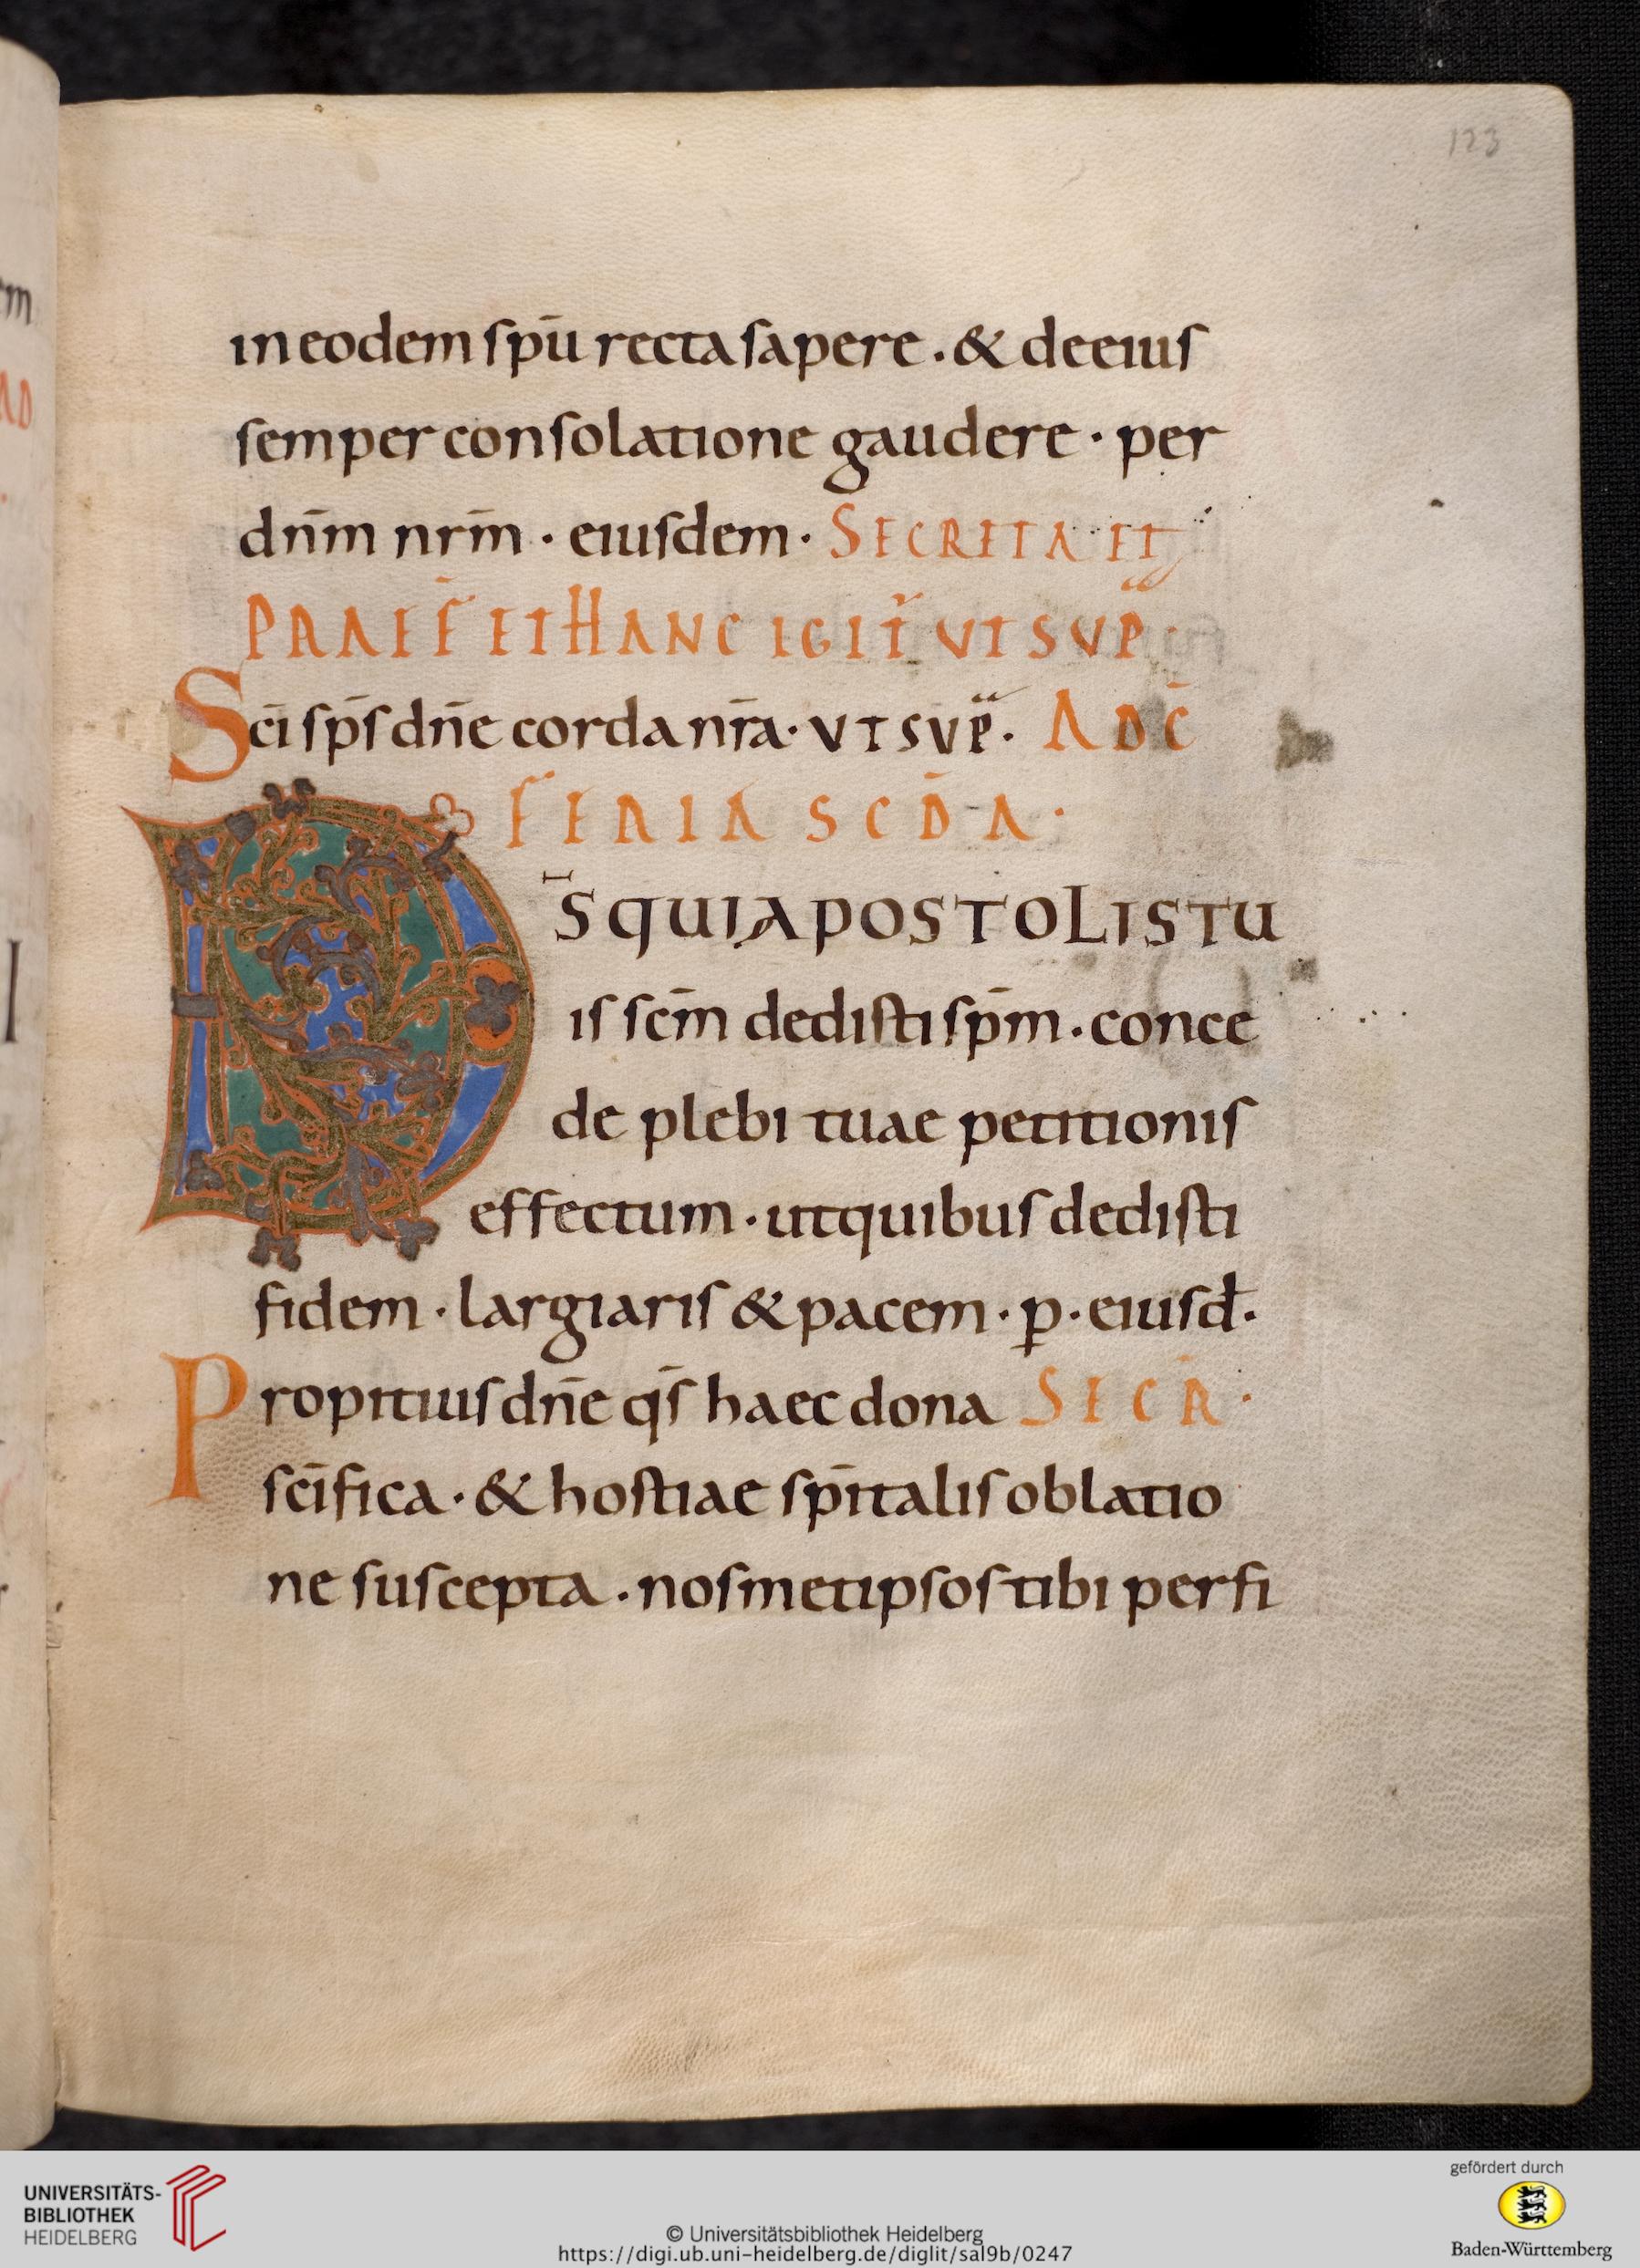 123
in eodem ſpū recta ſapere . & de eiuſ
ſemper conſolatione gaudere · per
dn̄m nr̄m · eiuſdem · SECRETA ET
PRAEF̄ ET HANC IGIT̄ VT SVP̄ ·
Sc̄i ſpſ̄ dn̄e corda nr̄a · VT SVP̄ · AD C̄
FERIA SCD̄A ·
D S̄ QUI APOSTOLIS TU
iſ ſcm̄ dediſti ſpm̄ . conce
de plebi tuae petitioniſ
effectum · ut quibuſ dediſti
fidem · largiariſ & pacem · p̱ · eiuſđ ·
Propitiuſ dn̄e qſ̄ haec dona SECR̄ ·
ſcīfica · & hoſtiae ſpītaliſ oblatio
ne ſuſcepta . noſmetipſoſ tibi perfi
UNIVERSITÄTS-
BIBLIOTHEK
HEIDELBERG
© Universitätsbibliothek Heidelberg
https://digi.ub.uni-heidelberg.de/diglit/sal9b/0247
gefördert durch
Baden-Württemberg